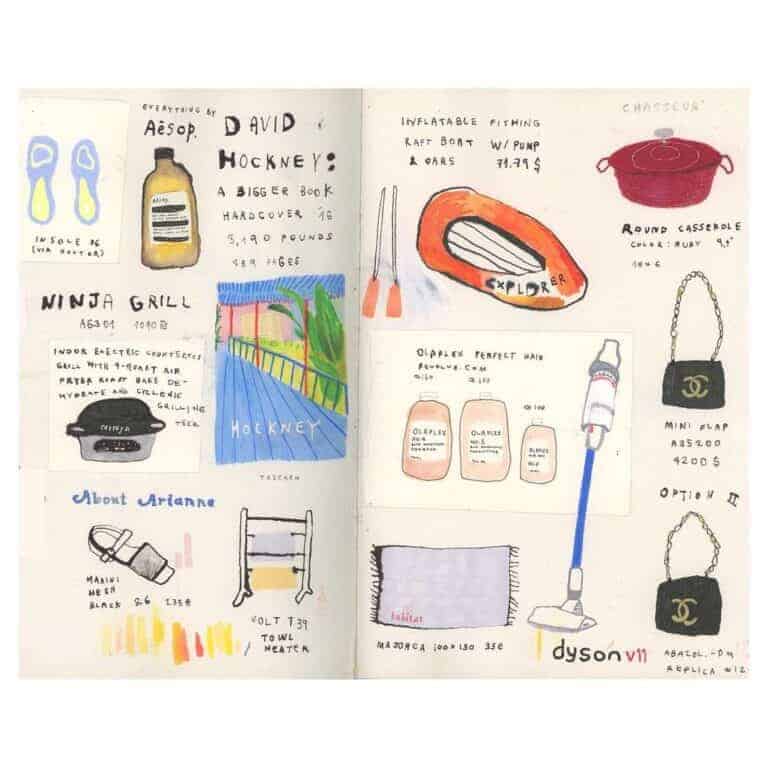 EVERYTHING BY
Aēsop.
INSOLE 36
(VIA DOCTOR)
DAVID
HOCKNEY:
A BIGGER BOOK
HARDCOVER '16
3,190 POUNDS
PAGES
NINJA GRILL
AG301
INDOR ELECTRIC COUNTERTOP
GRILL WITH 4-QUART AIR
FRYER ROAST BAKE DE-
HYDRATE AND CYCLONIC
GRILLING
TECH
ninja
HOCKNEY
TASCHEN
About Arianne
MAXINI
MESH
BLACK 36 235€
VOLT T39
TOWL
HEATER
INFLATABLE FITHING
RAFT BOAT W/ PUMP
& OARS 71.79 $
EXPLORER
CHASSEUR
ROUND CASSEROLE
COLOR: RUBY
OLAPLEX PERFECT HAIR
OLAPLEX
OLAPLEX
OLAPLEX
MINI FLAP
AS5200
4200 $
OPTION II
habitat
MAJORCA 100×150 35€
dyson v11
REPLICA